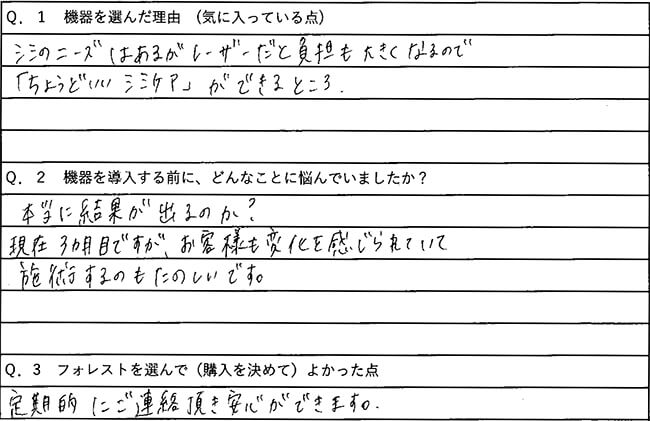 Q．１　機器を選んだ理由　（気に入っている点）
シミのニーズはあるがレーザーだと負担も大きくなるので
「ちょうどいいシミケア」ができるところ.
Q．２　機器を導入する前に、どんなことに悩んでいましたか？
本当に結果が出るのか?
現在3カ月目ですが、お客様も変化を感じられていて
施術するのもたのしいです。
Q．３　フォレストを選んで（購入を決めて）よかった点
定期的にご連絡頂き安心ができます.